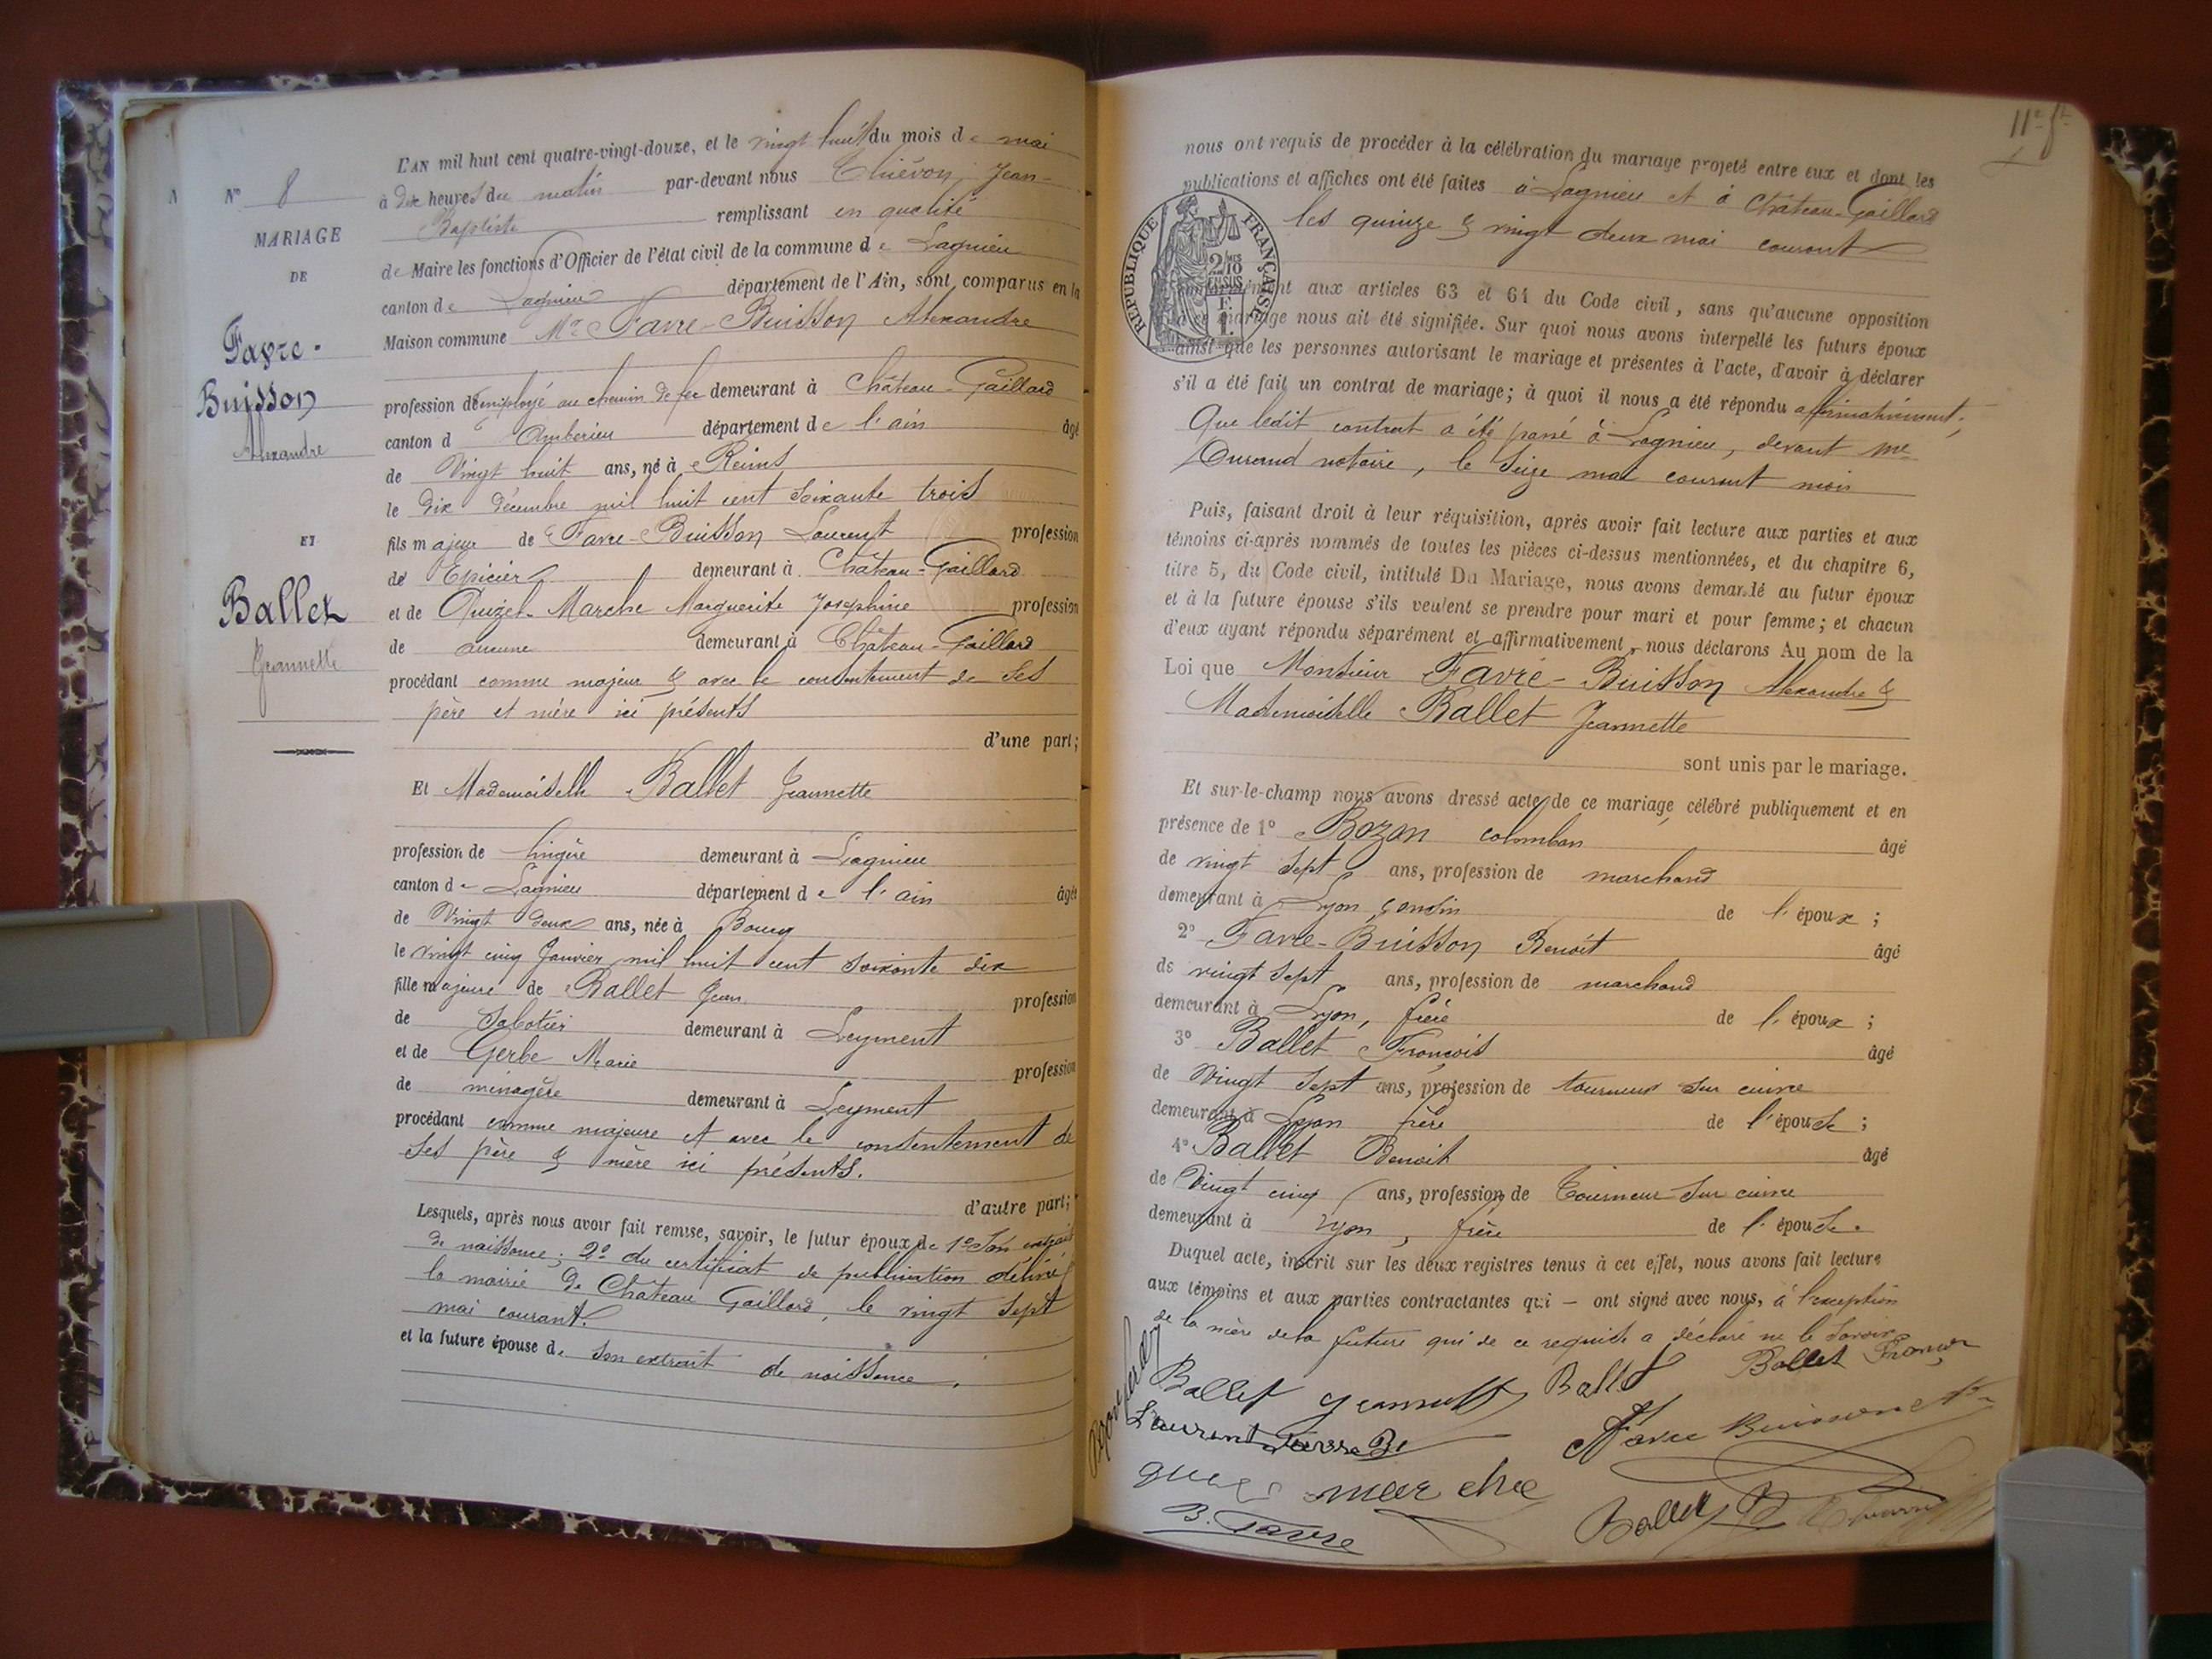 N° 8
MARIAGE
DE
Favre-
Buisson
Alexandre
ET
Ballet
Jeannette
L'AN mil huit cent quatre-vingt-douze, et le vingt huit du mois de mai
à dix heures du matin par-devant nous Thiévon, Jean-
Baptiste remplissant en qualité
de Maire les fonctions d'Officier de l'état civil de la commune de Lagnieu
canton de Lagnieu département de l'Ain, sont comparus en la
Maison commune Mr Favre-Buisson Alexandre
profession d'employé au chemin de fer demeurant à Château-Gaillard
canton d Amberieu département de l'ain âgé
de Vingt huit ans, né à Reims
le dix décembre mil huit cent soixante trois
fils majeur de Favre-Buisson Laurent profession
de Epicier demeurant à Château-Gaillard
et de Quizel-Marche Marguerite Joséphine profession
de aucune demeurant à Château-Gaillard
procédant comme majeur & avec le consentement de ses
père et mère ici présents
d'une part;
Et Mademoiselle Ballet Jeannette
profession de lingère demeurant à Lagnieu
canton de Lagnieu département de l'ain âgée
de Vingt deux ans, née à Bourg
le vingt cinq Janvier mil huit cent soixante dix
fille majeure de Ballet Jean profession
de Sabotier demeurant à Leyment
et de Gerbe Marie profession
de ménagère demeurant à Leyment
procédant comme majeure et avec le consentement de
ses père & mère ici présents.
d'autre part;
Lesquels, après nous avoir fait remise, savoir, le futur époux de 1° son extrait
de naissance; 2° du certificat de publication délivré
la mairie de Château Gaillard, le vingt sept
mai courant.
et la future épouse de son extrait de naissance.
11e ft
nous ont requis de procéder à la célébration du mariage projeté entre eux et dont les
publications et affiches ont été faites à Lagnieu et à Château-Gaillard
les quinze & vingt deux mai courant
RÉPUBLIQUE FRANÇAISE
2/10 EN SUS
conformément aux articles 63 et 64 du Code civil, sans qu'aucune opposition
à ce mariage nous ait été signifiée. Sur quoi nous avons interpellé les futurs époux
ainsi que les personnes autorisant le mariage et présentes à l'acte, d'avoir à déclarer
s'il a été fait un contrat de mariage; à quoi il nous a été répondu affirmativement;
Que ledit contrat a été passé à Lagnieu, devant me
Durand notaire, le seize mai courant mois
Puis, faisant droit à leur réquisition, après avoir fait lecture aux parties et aux
témoins ci-après nommés de toutes les pièces ci-dessus mentionnées, et du chapitre 6,
titre 5, du Code civil, intitulé Du Mariage, nous avons demandé au futur époux
et à la future épouse s'ils veulent se prendre pour mari et pour femme; et chacun
d'eux ayant répondu séparément et affirmativement, nous déclarons Au nom de la
Loi que Monsieur Favre-Buisson Alexandre &
Mademoiselle Ballet Jeannette
sont unis par le mariage.
Et sur-le-champ nous avons dressé acte de ce mariage, célébré publiquement et en
présence de 1° Bozon colomban âgé
de vingt sept ans, profession de marchand
demeurant à Lyon, cousin de l'époux;
2° Favre-Buisson Benoit âgé
de vingt sept ans, profession de marchand
demeurant à Lyon, frère de l'époux;
3° Ballet François âgé
de Vingt sept ans, profession de tourneur sur cuivre
demeurant à Lyon frère de l'épouse;
4° Ballet Benoit âgé
de Vingt cinq ans, profession de Tourneur sur cuivre
demeurant à Lyon, frère de l'épouse.
Duquel acte, inscrit sur les deux registres tenus à cet effet, nous avons fait lecture
aux témoins et aux parties contractantes qui — ont signé avec nous, à l'exception
de la mère de la future qui de ce requise a déclaré ne le savoir
Ballet Jeannette Ballet Ballet François
Laurent Favre B Favre Buisson Ale
quizel marche
B. Favre Ballet B Thiévon